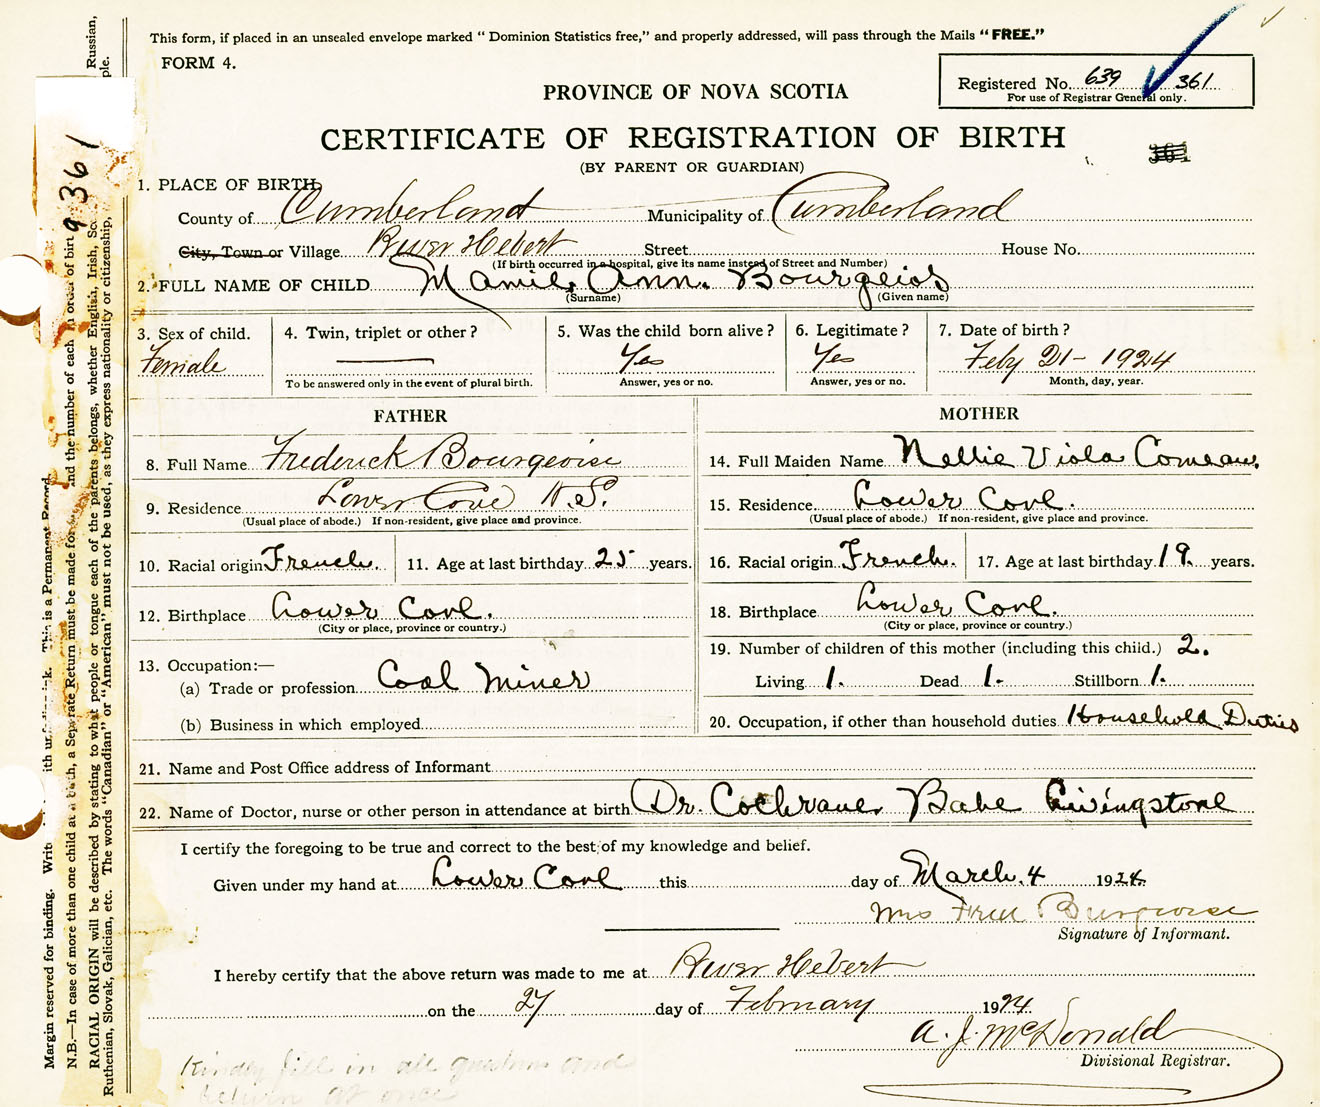 This form, if placed in an unsealed envelope marked " Dominion Statistics free," and properly addressed, will pass through the Mails " FREE."
FORM 4.
Registered No. 639 361
For use of Registrar General only.
PROVINCE OF NOVA SCOTIA
CERTIFICATE OF REGISTRATION OF BIRTH
361
(BY PARENT OR GUARDIAN)
1. PLACE OF BIRTH
County of Cumberland Municipality of Cumberland
City, Town or Village River Hebert Street House No.
(If birth occurred in a hospital, give its name instead of Street and Number)
2. FULL NAME OF CHILD Mamie Ann. Bourgeios
(Surname) (Given name)
3. Sex of child. 4. Twin, triplet or other? 5. Was the child born alive? 6. Legitimate? 7. Date of birth?
Female Yes Yes Feby 21 - 1924
To be answered only in the event of plural birth. Answer, yes or no. Answer, yes or no. Month, day, year.
FATHER MOTHER
8. Full Name Frederick Bourgeoise 14. Full Maiden Name Nellie Viola Comeau.
9. Residence Lower Cove N.S. 15. Residence Lower Cove.
(Usual place of abode.) If non-resident, give place and province. (Usual place of abode.) If non-resident, give place and province.
10. Racial origin French. 11. Age at last birthday 25 years. 16. Racial origin French. 17. Age at last birthday 19. years.
12. Birthplace Lower Cove. 18. Birthplace Lower Cove.
(City or place, province or country.) (City or place, province or country.)
13. Occupation:— 19. Number of children of this mother (including this child.) 2.
(a) Trade or profession Coal Miner Living 1. Dead 1. Stillborn 1.
(b) Business in which employed 20. Occupation, if other than household duties Household Duties
21. Name and Post Office address of Informant
22. Name of Doctor, nurse or other person in attendance at birth Dr. Cochrane. Babe Livingstone
I certify the foregoing to be true and correct to the best of my knowledge and belief.
Given under my hand at Lower Cove this day of March. 4 1924.
Mrs Fred Burgeoise
Signature of Informant.
I hereby certify that the above return was made to me at River Hebert
on the 27 day of February 1924.
A. J. McDonald
Divisional Registrar.
Kindly fill in all questions and
return at once
9 361
Margin reserved for binding. This is a Permanent Record.
N.B.—In case of more than one child at birth, a Separate Return must be made for and the number of each in order of birth
RACIAL ORIGIN will be described by stating to what people or tongue each of the parents belongs, whether English, Irish, Russian,
Ruthenian, Slovak, Galician, etc. The words "Canadian" or "American" must not be used, as they express nationality or citizenship,